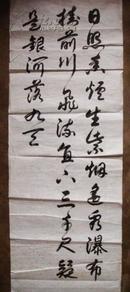 日照香爐生紫烟遥看瀑布
掛前川飛流直下三千尺疑
是銀河落九天